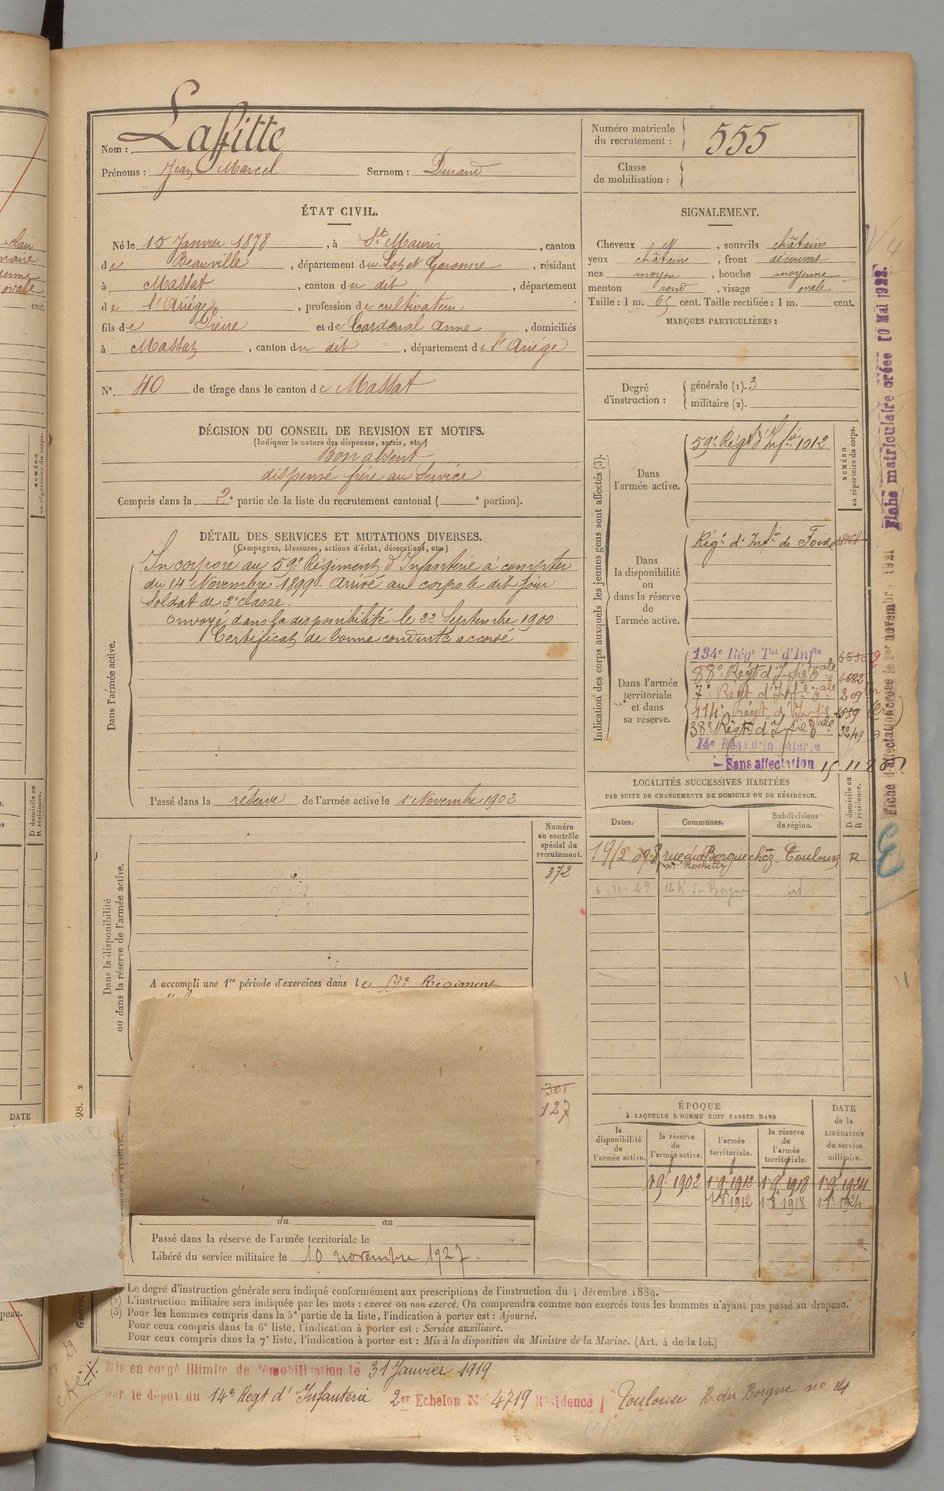 Lafitte
Nom :
Prénoms : Jean Marcel Surnom : Durand
Numéro matricule
du recrutement : 555
Classe
de mobilisation :
ÉTAT CIVIL.
Né le 15 Janvier 1878, à St Maurin, canton
de Beauville, département du Lot et Garonne, résidant
à Massat, canton du dit, département
de l'Ariège, profession de cultivateur
fils de Pierre et de Cardenal Anne, domiciliés
à Massat, canton du dit, département de l'Ariège
N° 40 de tirage dans le canton de Massat
SIGNALEMENT.
Cheveux , sourcils châtains
yeux châtains, front découvert
nez moyen, bouche moyenne
menton rond, visage ovale
Taille : 1 m. 65 cent. Taille rectifiée : 1 m. cent.
MARQUES PARTICULIÈRES :
Degré
d'instruction :
générale (1). 3
militaire (2).
DÉCISION DU CONSEIL DE REVISION ET MOTIFS.
(Indiquer la nature des dispenses, sursis, etc.)
Bon absent
dispensé frère au Service
Compris dans la 2e partie de la liste du recrutement cantonal ( e portion).
DÉTAIL DES SERVICES ET MUTATIONS DIVERSES.
(Campagnes, blessures, actions d'éclat, décorations, etc.)
Dans l'armée active.
Incorporé au 59e Régiment d'Infanterie à compter
du 14 Novembre 1899. Arrivé au corps le dit jour
Soldat de 2e classe.
Envoyé dans la disponibilité le 22 Septembre 1900
Certificat de bonne conduite accordé
Passé dans la réserve de l'armée active le 1er Novembre 1902
Indication des corps auxquels les jeunes gens sont affectés (3).
NUMÉRO
au répertoire du corps.
Dans
l'armée active.
59e Régt d'Infie 1012
Dans
la disponibilité
ou dans la réserve
de
l'armée active.
Régt d'Infie de Foix
Dans l'armée
territoriale
et dans
sa réserve.
134e Régt Tal d'Infie
88e Régt d'Infie
7e Régt d'Inf
114e Régt d'Infie
38e Régt d'Infie
14e Régt d'Infanterie
Sans affectation
Fiche matriculaire créée 10 Mai 1922.
LOCALITÉS SUCCESSIVES HABITÉES
PAR SUITE DE CHANGEMENTS DE DOMICILE OU DE RÉSIDENCE.
Dates.
Communes.
Subdivisions
de région.
D domicile ou
R résidence.
rue du Borgne chez Toulouse R
Dans la disponibilité
ou dans la réserve de l'armée active.
Numéro
au contrôle
spécial du
recrutement.
372
A accompli une 1re période d'exercices dans le 59e Régiment
301
127
ÉPOQUE
À LAQUELLE L'HOMME DOIT PASSER DANS
la
disponibilité
de
l'armée active.
la réserve
de
l'armée active.
l'armée
territoriale.
la réserve
de
l'armée
territoriale.
DATE
de la
LIBÉRATION
du service
militaire.
1902 1912 1918 1924
1912 1918 1924
du au
Passé dans la réserve de l'armée territoriale le
Libéré du service militaire le 10 novembre 1927.
Le degré d'instruction générale sera indiqué conformément aux prescriptions de l'instruction du 4 décembre 1889.
(2) L'instruction militaire sera indiquée par les mots : exercé ou non exercé. On comprendra comme non exercés tous les hommes n'ayant pas passé au drapeau.
(3) Pour les hommes compris dans la 5e partie de la liste, l'indication à porter est : Ajourné.
Pour ceux compris dans la 6e liste, l'indication à porter est : Service auxiliaire.
Pour ceux compris dans la 7e liste, l'indication à porter est : Mis à la disposition du Ministre de la Marine. (Art. 4 de la loi.)
Mis en congé illimité de démobilisation le 31 Janvier 1919
par le dépôt du 14e Régt d'Infanterie 2er Echelon N° 4719 Résidence Toulouse R. du Borgne no 14